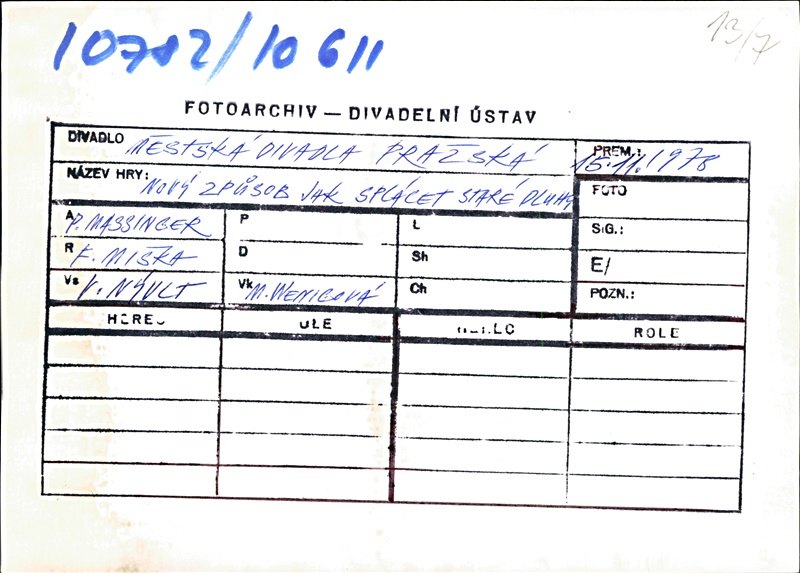 10782/10611
13/7
FOTOARCHIV — DIVADELNÍ ÚSTAV
DIVADLO MĚSTSKÁ DIVADLA PRAŽSKÁ
PREM.: 15.11.1978
NÁZEV HRY: NOVÝ ZPŮSOB JAK SPLÁCET STARÉ DLUHY
FOTO
A P. MASSINGER P L SIG.:
R F. MIŠKA D Sh E/
Vs V. NÝVLT Vk M. WENIGOVÁ Ch POZN.:
HEREC ROLE